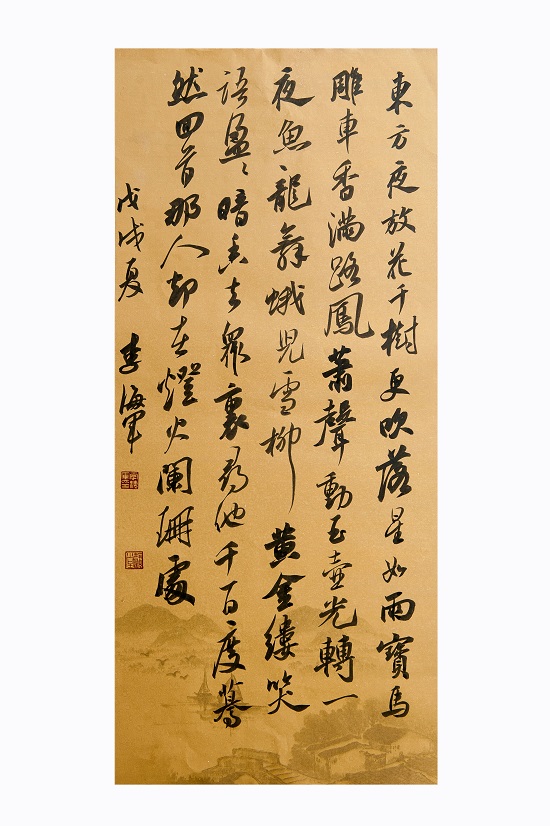 東方夜放花千樹更吹落星如雨寶馬
雕車香滿路鳳蕭聲動玉壺光轉一
夜魚龍舞蛾兒雪柳黄金縷笑
語盈〻暗香去衆裏尋他千百度驀
然回首那人却在燈火闌珊處
戊戌夏 李海軍